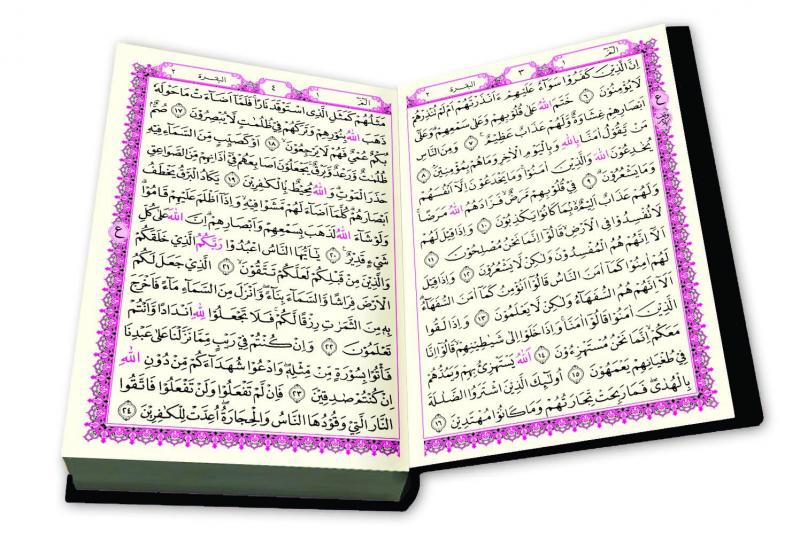 الٓمّٓ ١ ٣ البقرة ٢
اِنَّ الَّذِينَ كَفَرُوا سَوَاءٌ عَلَيْهِمْ ءَاَنْذَرْتَهُمْ اَمْ لَمْ تُنْذِرْهُمْ
لَا يُؤْمِنُونَ ٦ خَتَمَ اللّٰهُ عَلٰى قُلُوبِهِمْ وَعَلٰى سَمْعِهِمْ وَعَلٰى
اَبْصَارِهِمْ غِشَاوَةٌ وَلَهُمْ عَذَابٌ عَظِيمٌ ٧ وَمِنَ النَّاسِ
مَنْ يَقُولُ اٰمَنَّا بِاللّٰهِ وَبِالْيَوْمِ الْاٰخِرِ وَمَا هُمْ بِمُؤْمِنِينَ ٨
يُخٰدِعُونَ اللّٰهَ وَالَّذِينَ اٰمَنُوا وَمَا يَخْدَعُونَ اِلَّا اَنْفُسَهُمْ
وَمَا يَشْعُرُونَ ٩ فِي قُلُوبِهِمْ مَرَضٌ فَزَادَهُمُ اللّٰهُ مَرَضًا
وَلَهُمْ عَذَابٌ اَلِيمٌ بِمَا كَانُوا يَكْذِبُونَ ١٠ وَاِذَا قِيلَ لَهُمْ
لَا تُفْسِدُوا فِي الْاَرْضِ قَالُوا اِنَّمَا نَحْنُ مُصْلِحُونَ ١١
اَلَا اِنَّهُمْ هُمُ الْمُفْسِدُونَ وَلٰكِنْ لَا يَشْعُرُونَ ١٢ وَاِذَا قِيلَ
لَهُمْ اٰمِنُوا كَمَا اٰمَنَ النَّاسُ قَالُوا اَنُؤْمِنُ كَمَا اٰمَنَ السُّفَهَاءُ
اَلَا اِنَّهُمْ هُمُ السُّفَهَاءُ وَلٰكِنْ لَا يَعْلَمُونَ ١٣ وَاِذَا لَقُوا
الَّذِينَ اٰمَنُوا قَالُوا اٰمَنَّا وَاِذَا خَلَوْا اِلٰى شَيٰطِينِهِمْ قَالُوا اِنَّا
مَعَكُمْ اِنَّمَا نَحْنُ مُسْتَهْزِءُونَ ١٤ اَللّٰهُ يَسْتَهْزِئُ بِهِمْ وَيَمُدُّهُمْ
فِي طُغْيٰنِهِمْ يَعْمَهُونَ ١٥ اُولٰئِكَ الَّذِينَ اشْتَرَوُا الضَّلٰلَةَ
بِالْهُدٰى فَمَا رَبِحَتْ تِجَارَتُهُمْ وَمَا كَانُوا مُهْتَدِينَ ١٦
الٓمّٓ ١ ٤ البقرة ٢
مَثَلُهُمْ كَمَثَلِ الَّذِي اسْتَوْقَدَ نَارًا فَلَمَّا اَضَاءَتْ مَا حَوْلَهُ
ذَهَبَ اللّٰهُ بِنُورِهِمْ وَتَرَكَهُمْ فِي ظُلُمٰتٍ لَا يُبْصِرُونَ ١٧ صُمٌّ
بُكْمٌ عُمْيٌ فَهُمْ لَا يَرْجِعُونَ ١٨ اَوْ كَصَيِّبٍ مِنَ السَّمَاءِ فِيهِ
ظُلُمٰتٌ وَرَعْدٌ وَبَرْقٌ يَجْعَلُونَ اَصَابِعَهُمْ فِي اٰذَانِهِمْ مِنَ الصَّوَاعِقِ
حَذَرَ الْمَوْتِ وَاللّٰهُ مُحِيطٌ بِالْكٰفِرِينَ ١٩ يَكَادُ الْبَرْقُ يَخْطَفُ
اَبْصَارَهُمْ كُلَّمَا اَضَاءَ لَهُمْ مَشَوْا فِيهِ وَاِذَا اَظْلَمَ عَلَيْهِمْ قَامُوا
وَلَوْ شَاءَ اللّٰهُ لَذَهَبَ بِسَمْعِهِمْ وَاَبْصَارِهِمْ اِنَّ اللّٰهَ عَلٰى كُلِّ
شَيْءٍ قَدِيرٌ ٢٠ يَا اَيُّهَا النَّاسُ اعْبُدُوا رَبَّكُمُ الَّذِي خَلَقَكُمْ
وَالَّذِينَ مِنْ قَبْلِكُمْ لَعَلَّكُمْ تَتَّقُونَ ٢١ الَّذِي جَعَلَ لَكُمُ
الْاَرْضَ فِرَاشًا وَالسَّمَاءَ بِنَاءً وَاَنْزَلَ مِنَ السَّمَاءِ مَاءً فَاَخْرَجَ
بِهِ مِنَ الثَّمَرٰتِ رِزْقًا لَكُمْ فَلَا تَجْعَلُوا لِلّٰهِ اَنْدَادًا وَاَنْتُمْ
تَعْلَمُونَ ٢٢ وَاِنْ كُنْتُمْ فِي رَيْبٍ مِمَّا نَزَّلْنَا عَلٰى عَبْدِنَا
فَأْتُوا بِسُورَةٍ مِنْ مِثْلِهِ وَادْعُوا شُهَدَاءَكُمْ مِنْ دُونِ اللّٰهِ
اِنْ كُنْتُمْ صٰدِقِينَ ٢٣ فَاِنْ لَمْ تَفْعَلُوا وَلَنْ تَفْعَلُوا فَاتَّقُوا
النَّارَ الَّتِي وَقُودُهَا النَّاسُ وَالْحِجَارَةُ اُعِدَّتْ لِلْكٰفِرِينَ ٢٤